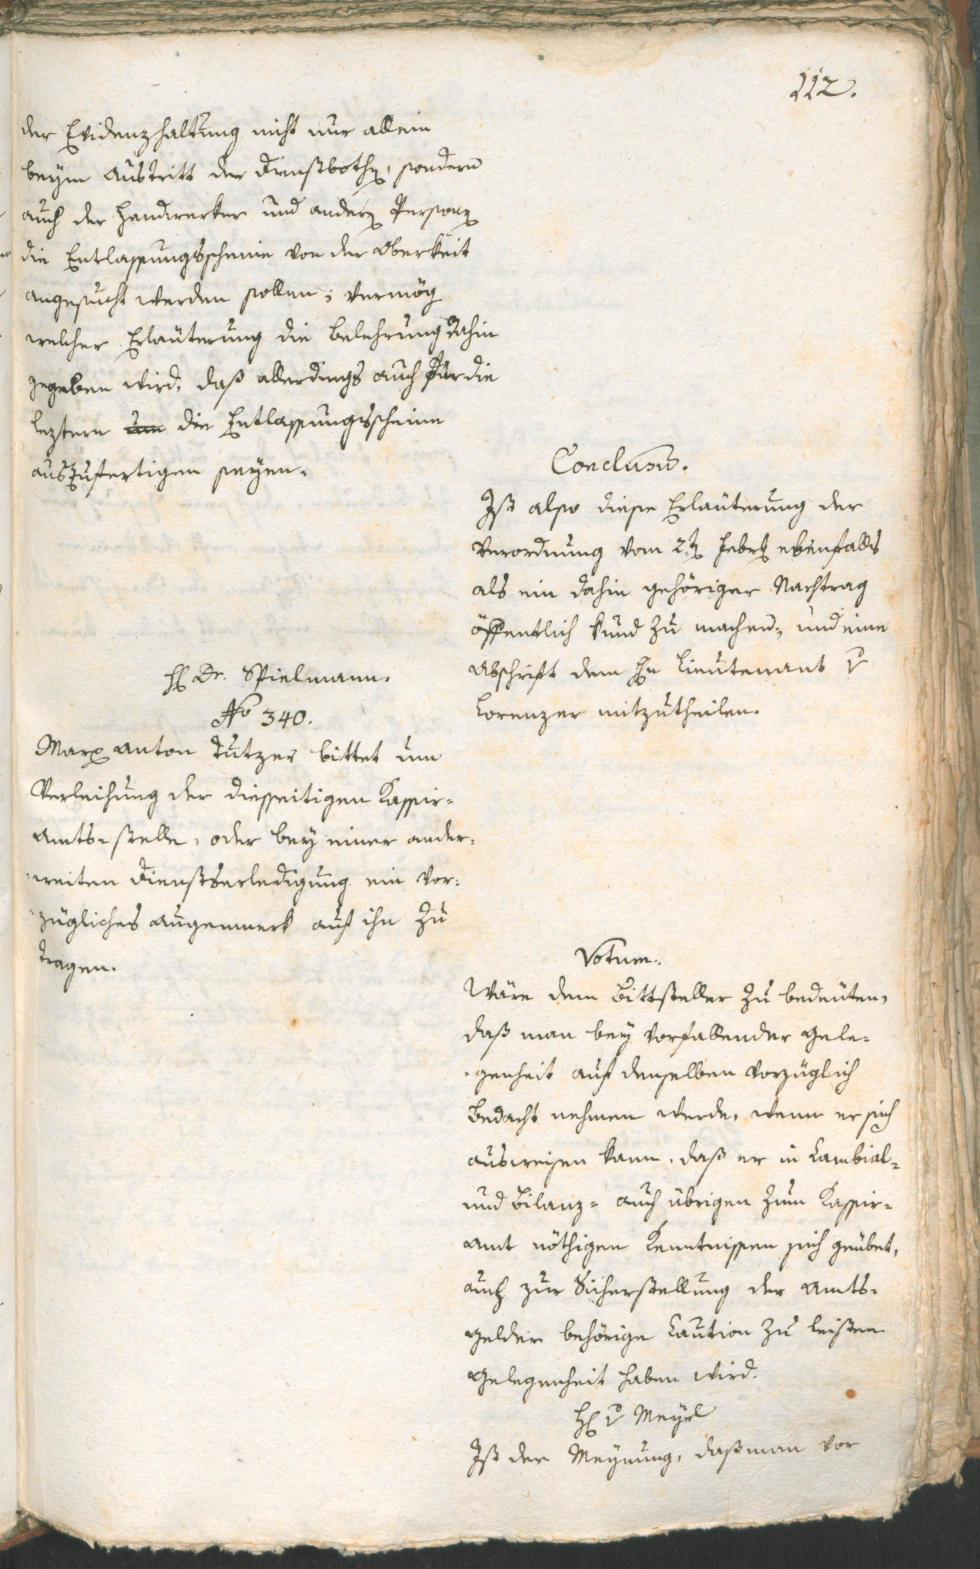 112.
der Evidenzhaltung nicht nur allein
beym Austritt der Dienstbothen, sondern
auch der Handwerker und andern Personen
die Entlassungsscheine von der Oberkeit
angesucht werden sollen; vermög
welcher Erläuterung die Belehrung dahin
gegeben wird, daß allerdings auch für die
leztern um die Entlassungsscheine
auszufertigen seyen.
Conclusum.
Ist also diese Erläuterung der
Verordnung vom 2.ten Febr. ebenfalls
als ein dahin gehöriger Nachtrag
öffentlich kund zu machen, und eine
Abschrift dem Hn Lieutenant v
Lorenzer mitzutheilen.
H Dr. Spielmann.
No 340.
Marx Anton Tutzer bittet um
Verleihung der diesseitigen Kassir-
Amts-stelle, oder bey einer ander-
weiten Dienstserledigung ein vor-
zügliches Augenmerk auf ihn zu
tragen.
Votum.
Wäre dem Bittsteller zu bedeuten,
daß man bey vorfallender Gele-
genheit auf denselben vorzüglich
Bedacht nehmen werde, wenn er sich
ausweisen kann, daß er in Cambial-
und Bilanz- auch übrigen zum Kassir-
Amt nöthigen Kenntnissen sich geübet,
auch zur Sicherstellung der Amts-
gelder behörige Caution zu leisten
Gelegenheit haben wird.
H v Meyrl
Ist der Meynung, daß man vor